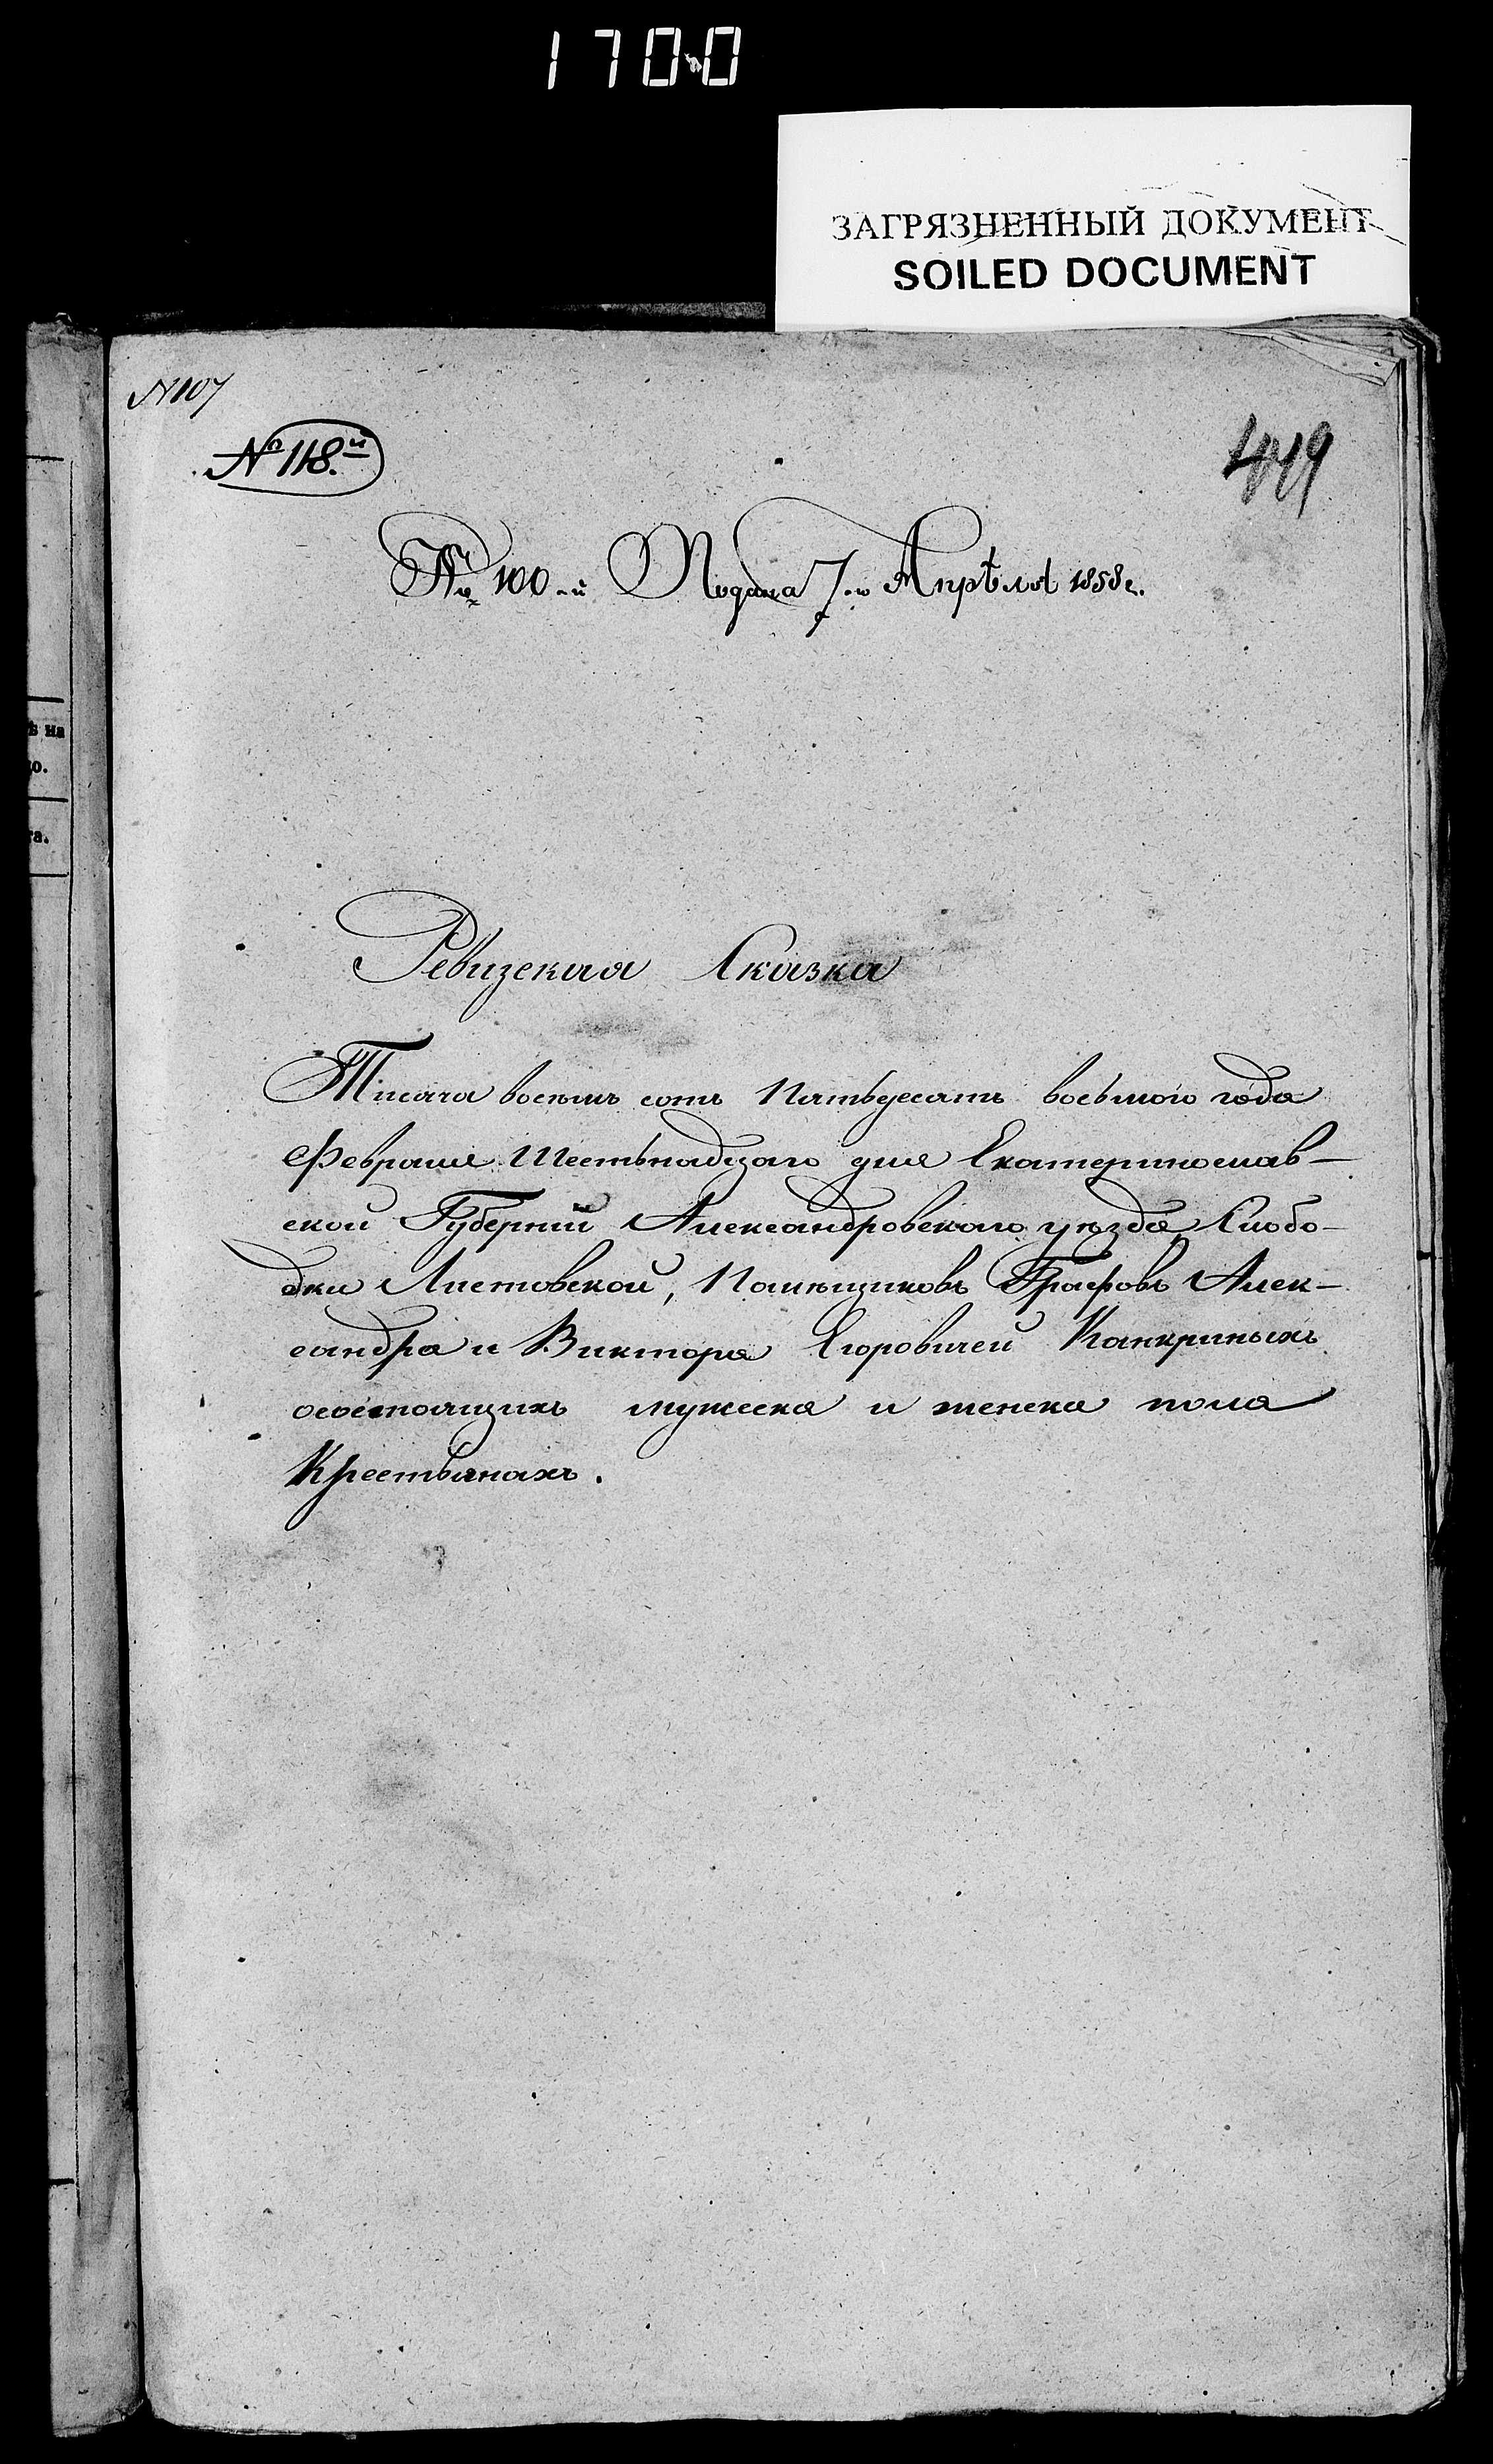 1700
ЗАГРЯЗНЕННЫЙ ДОКУМЕНТ
SOILED DOCUMENT
N107
№118.й
449
№ 100-й Подана 7-го Апрѣля 1858 г.
ѣ на
о.
та.
Ревизская Сказка
Тисяча восемь сотъ Пятьдесятъ восьмого года
Февраля Шестьнадцаго дня Екатеринослав-
ской Губерніи Александровскаго уѣзда, Слобо-
дки Листовской, Помѣщиковъ Графовъ Алек-
сандра и Виктора Егоровичей Канкриныхъ
осостоящихъ мужеска и женска пола
Крестьянахъ.